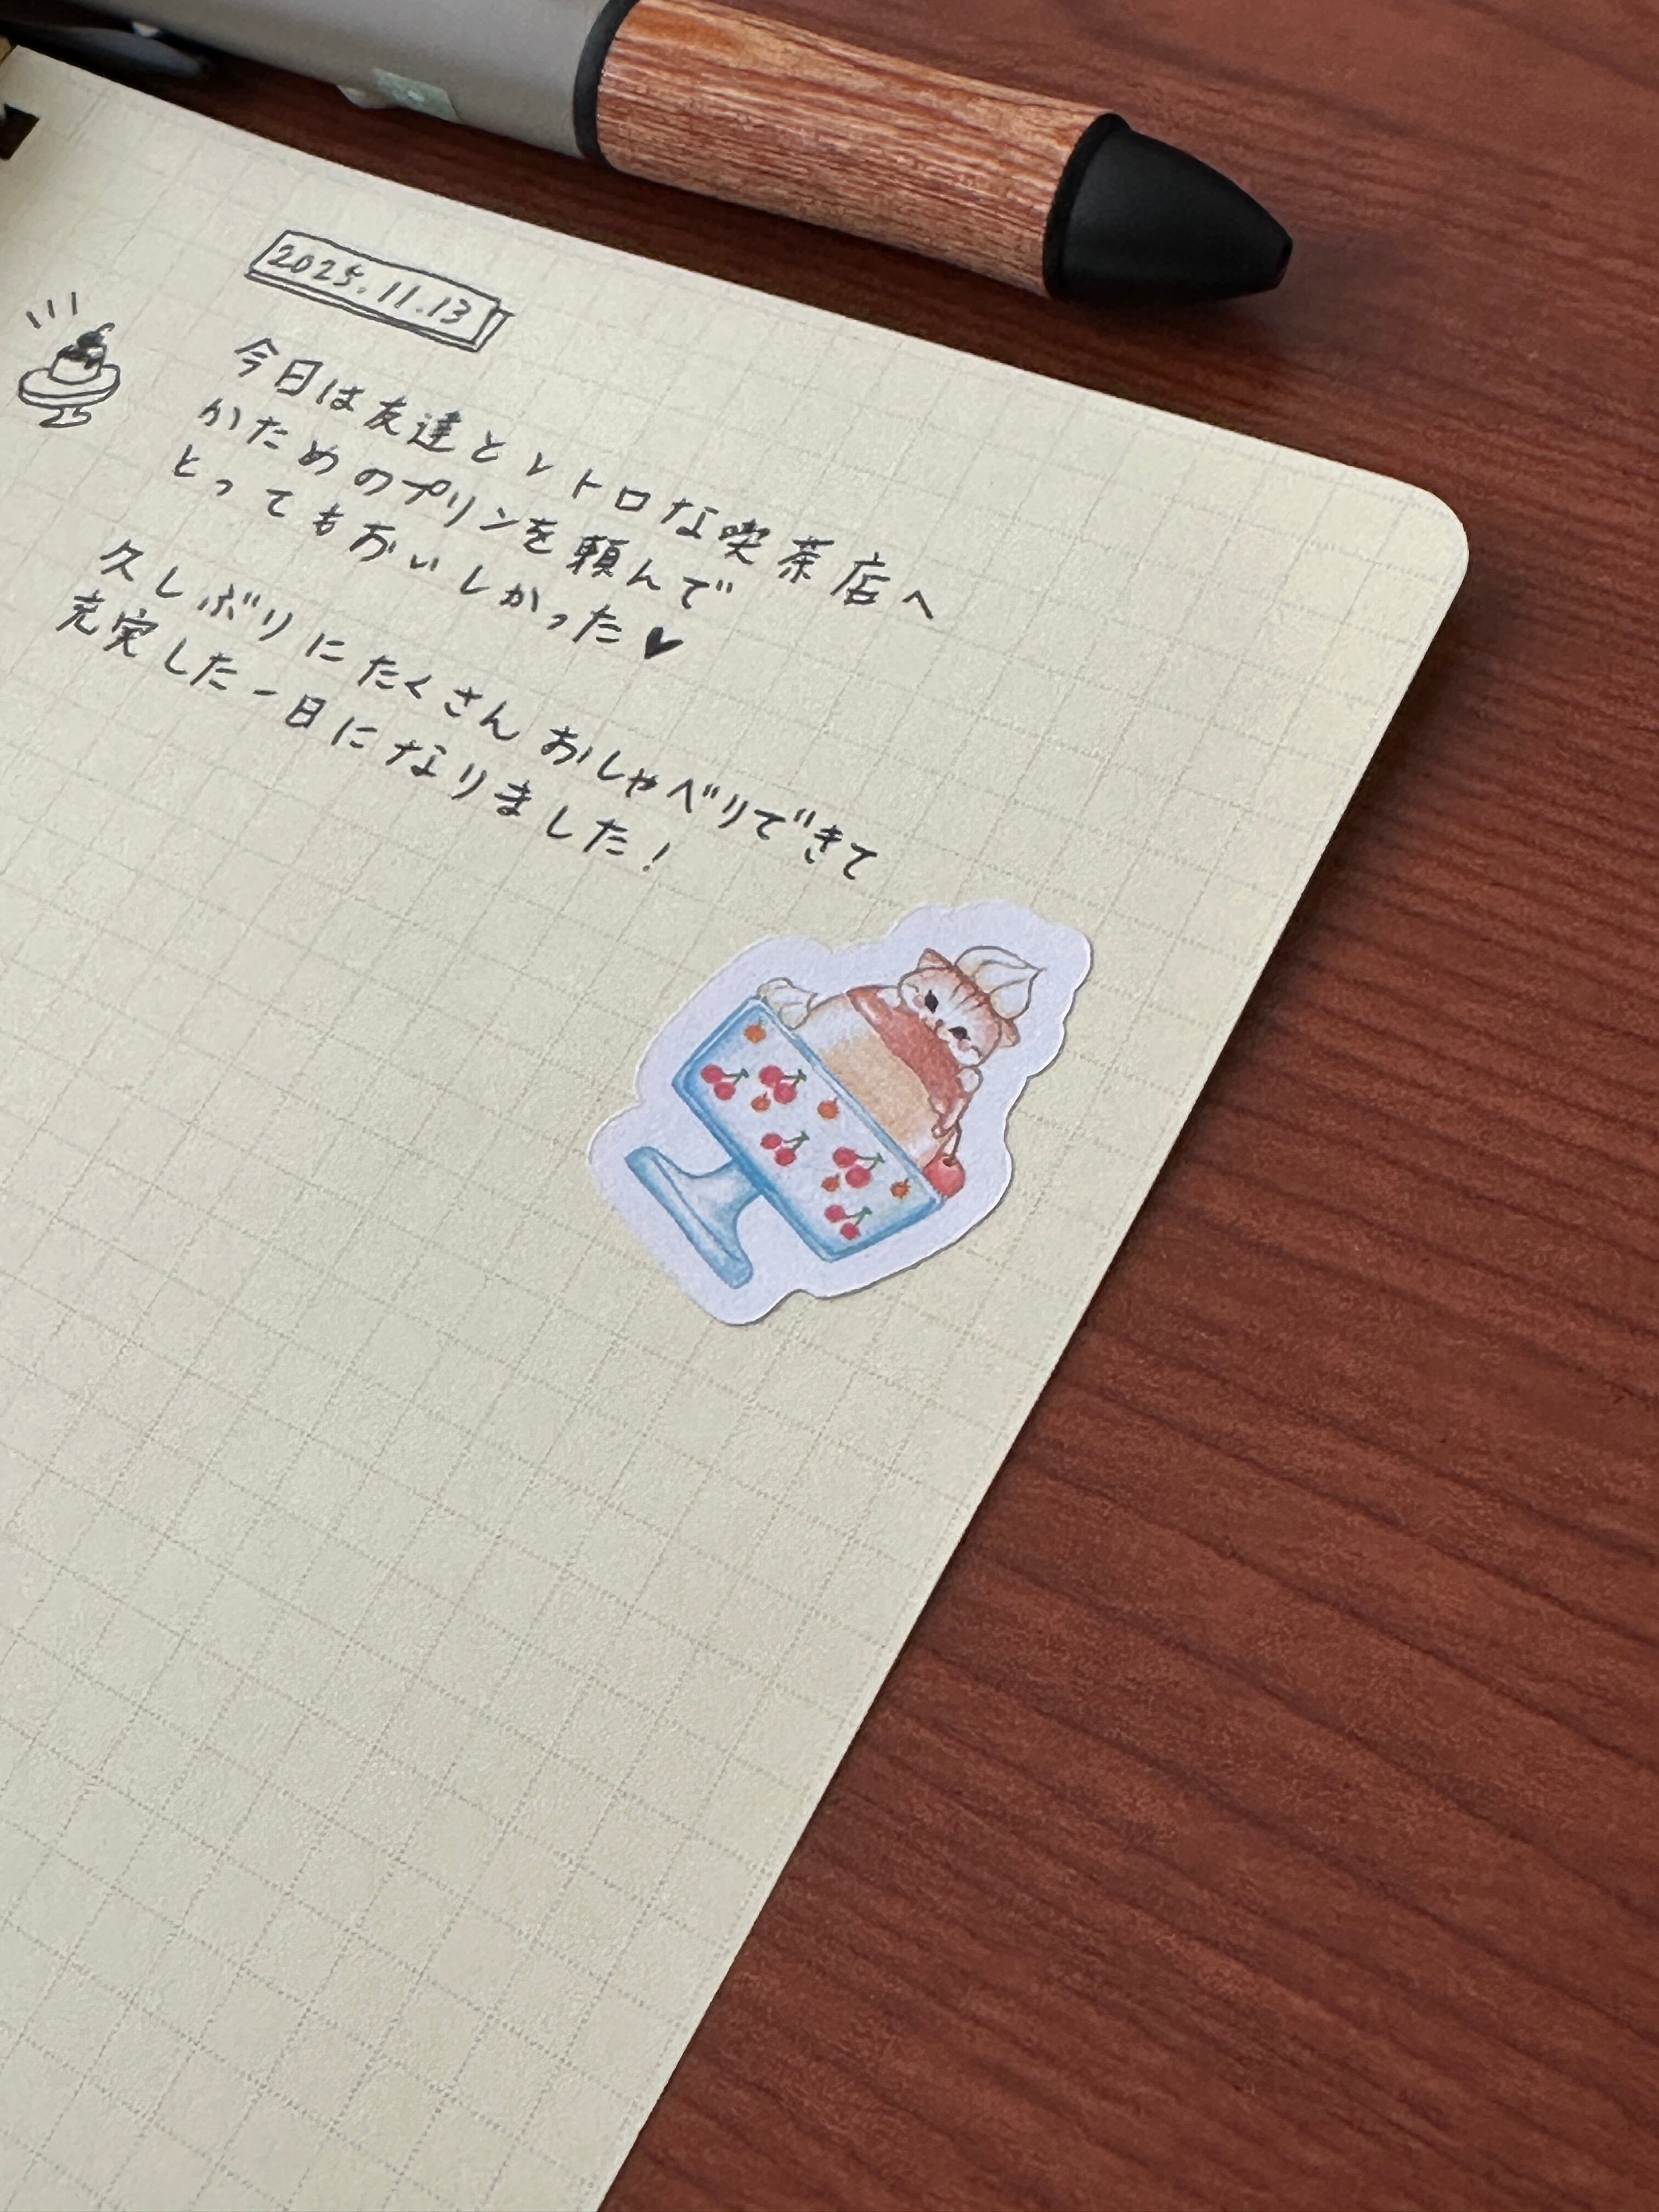 2025.11.13
今日は友達とレトロな喫茶店へ
かためのプリンを頼んで
とってもおいしかった♥
久しぶりにたくさんおしゃべりできて
充実した一日になりました!